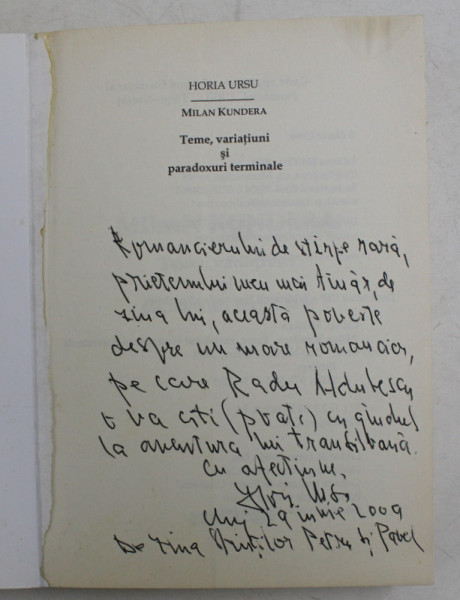 HORIA URSU
MILAN KUNDERA
Teme, variațiuni
și
paradoxuri terminale
Romancierului de stirpe rară,
prietenului meu mai tînăr, de
ziua lui, această poveste
despre un mare romancier,
pe care Radu Aldulescu
o va citi (poate) cu gîndul
la aventura lui transilvană.
Cu afecțiune,
Horia Ursu
Cluj 29 iunie 2009
De ziua Sfinților Petru și Pavel